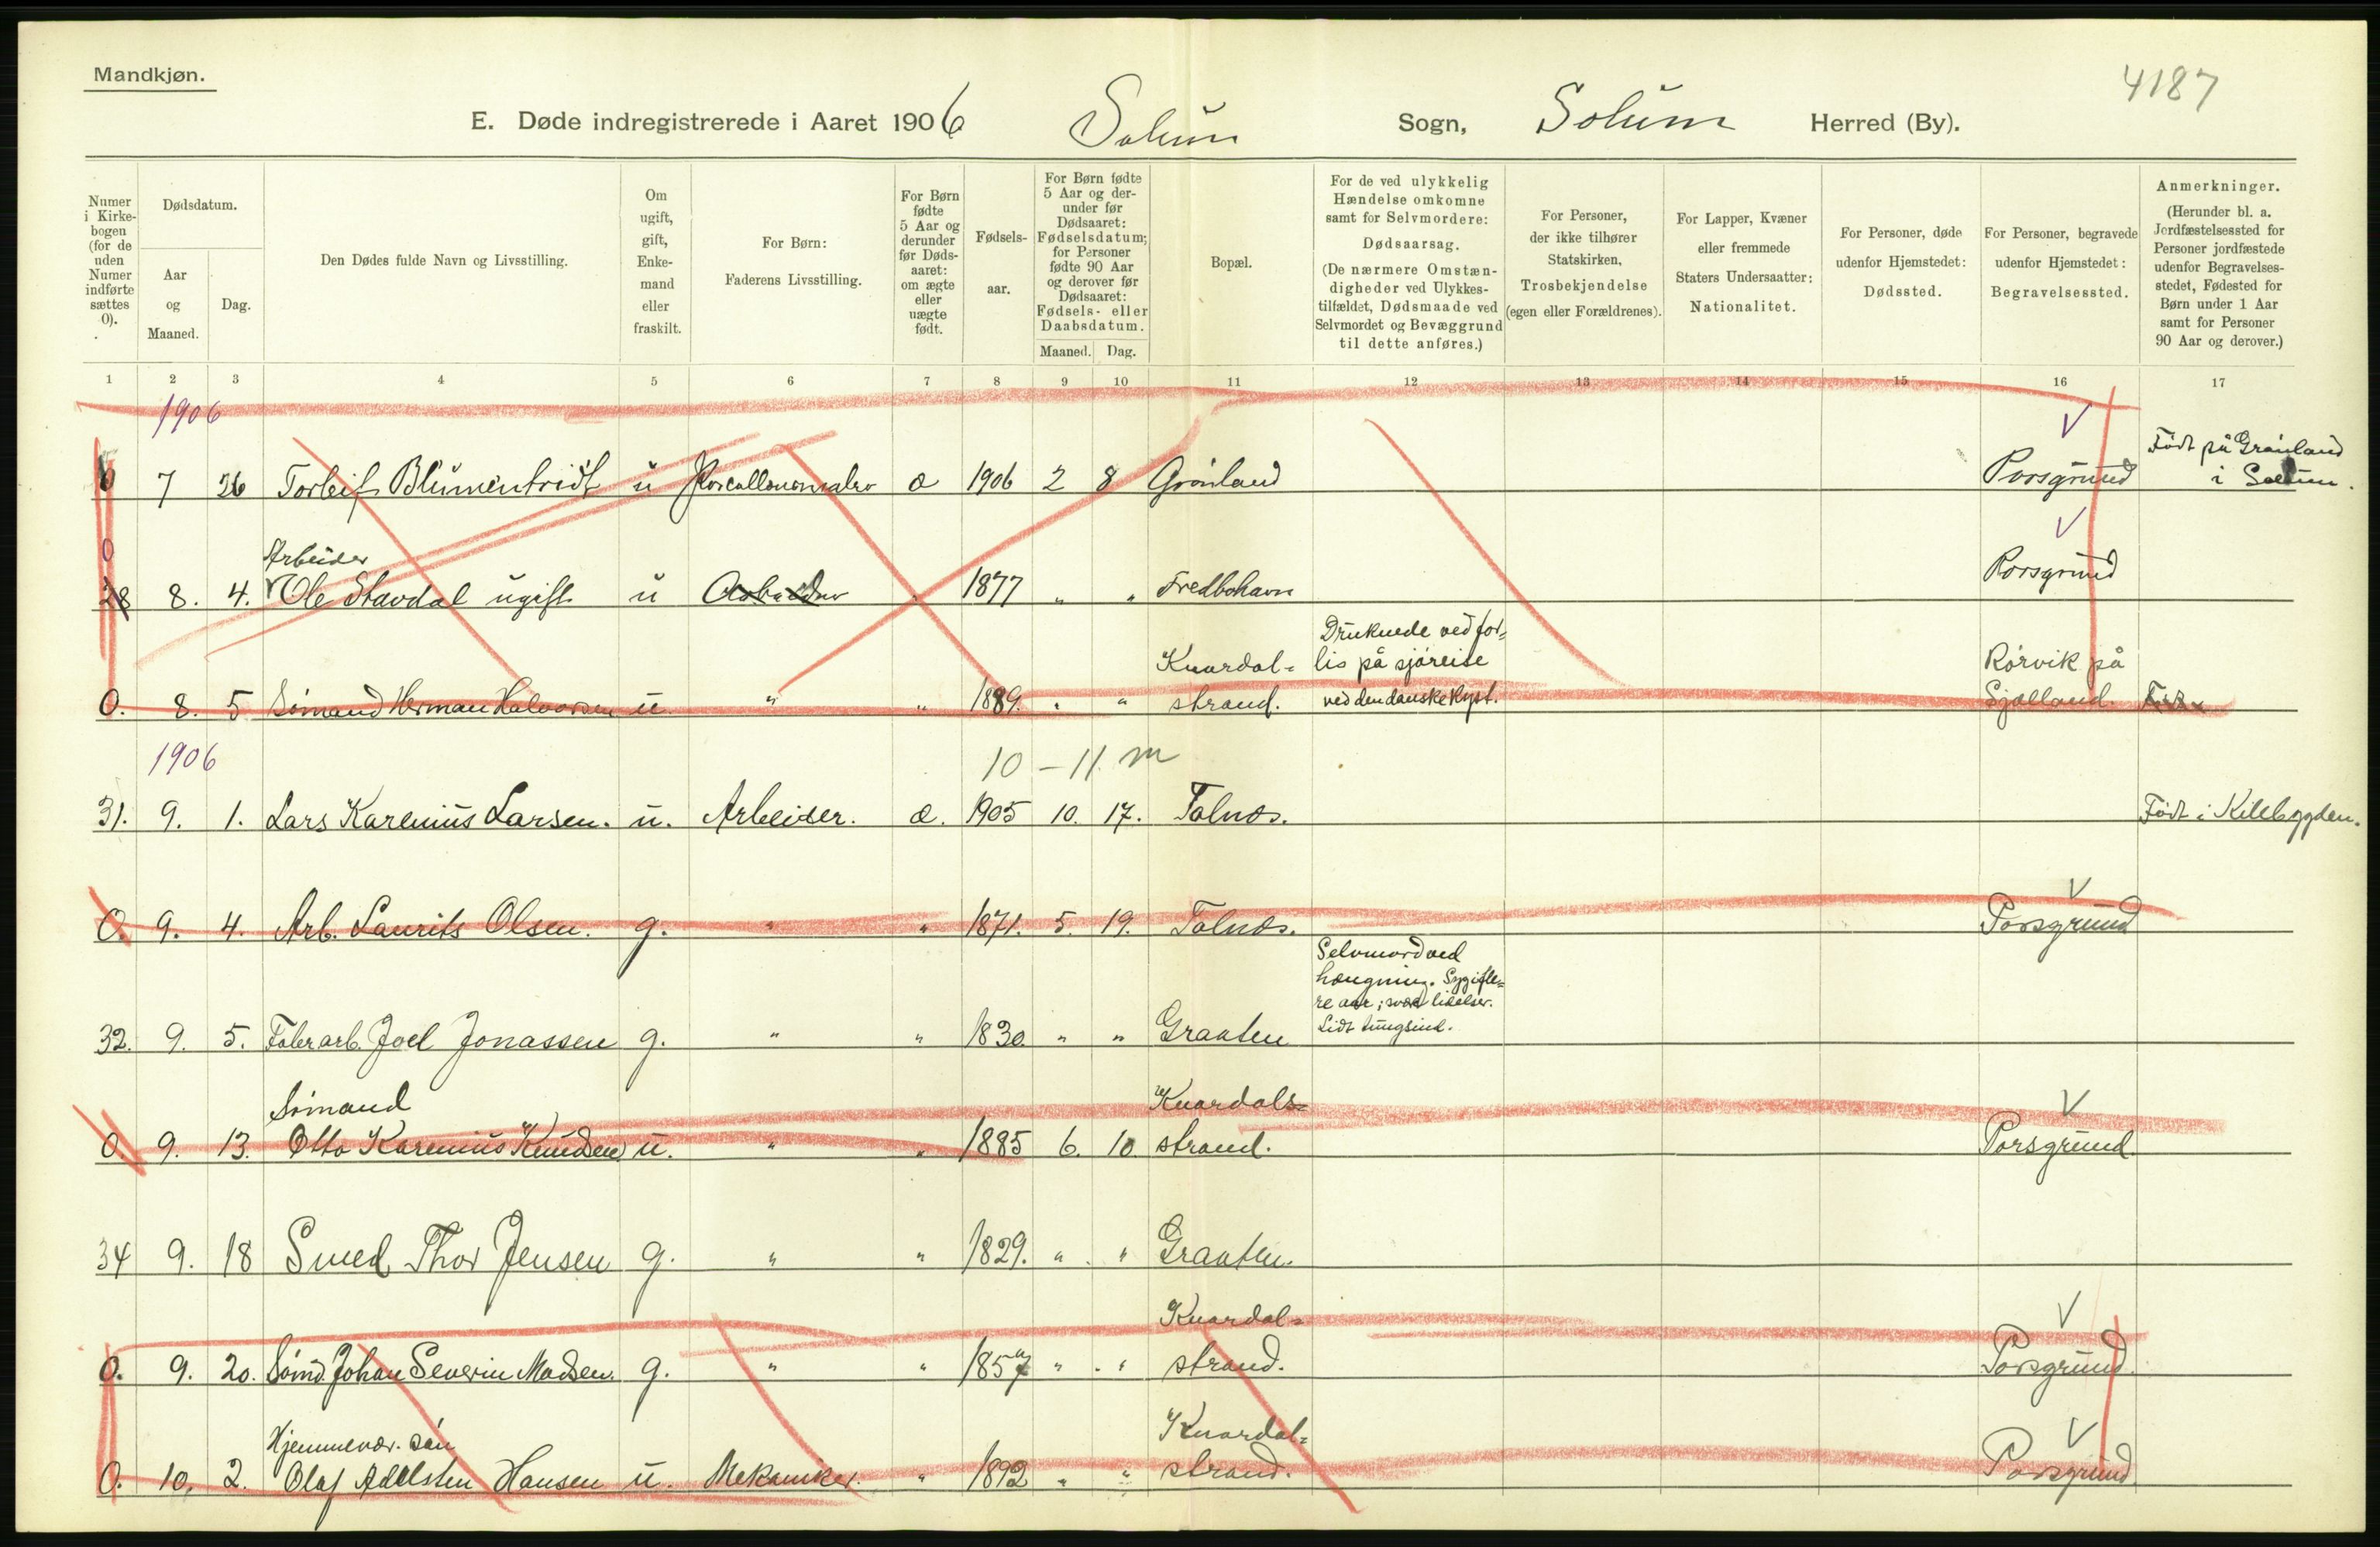 Mandkjøn.
4187
E. Døde indregistrerede i Aaret 1906 Solum Sogn, Solum Herred (By).
Numer i Kirkebogen (for de uden Numer indførte sættes 0).
Dødsdatum.
Aar og Maaned.
Dag.
Den Dødes fulde Navn og Livsstilling.
Om ugift, gift, Enkemand eller fraskilt.
For Børn: Faderens Livsstilling.
For Børn fødte 5 Aar og derunder før Dødsaaret: om ægte eller uægte født.
Fødselsaar.
For Børn fødte 5 Aar og derunder før Dødsaaret: Fødselsdatum; for Personer fødte 90 Aar og derover før Dødsaaret: Fødsels- eller Daabsdatum.
Maaned. Dag.
Bopæl.
For de ved ulykkelig Hændelse omkomne samt for Selvmordere: Dødsaarsag. (De nærmere Omstændigheder ved Ulykkestilfældet, Dødsmaade ved Selvmordet og Bevæggrund til dette anføres.)
For Personer, der ikke tilhører Statskirken, Trosbekjendelse (egen eller Forældrenes).
For Lapper, Kvæner eller fremmede Staters Undersaatter: Nationalitet.
For Personer, døde udenfor Hjemstedet: Dødssted.
For Personer, begravede udenfor Hjemstedet: Begravelsessted.
Anmerkninger. (Herunder bl. a. Jordfæstelsessted for Personer jordfæstede udenfor Begravelsesstedet, Fødested for Børn under 1 Aar samt for Personer 90 Aar og derover.)
1 2 3 4 5 6 7 8 9 10 11 12 13 14 15 16 17
1906
Født på Grønland
7 26 Torleif Blumentridt u æ 1906 2 8 Grønland Porsgrund i Solum.
0
Arbeider
28 8. 4. Ole Stavdal ugift u Arbeider " 1877 " " Fredbohavn Porsgrund
Druknede ved for-
Knardal- lis på sjøreise Rørvik på
0. 8. 5 Sømand Herman Halvorsen u. " " 1889. " " strand. ved den danske kyst. Sjælland.
1906 10 - 11 m
31. 9. 1. Lars Karenius Larsen. u. Arbeider. æ. 1905 10. 17. Tolnæs. Født i Kilebygden.
0. 9. 4. Arb. Laurits Olsen. g. " " 1871. 5. 19. Tolnæs. Porsgrund
Selvmord ved
hængning. Syg i fle-
re aar; svære lidelser.
Lidt tungsind.
32. 9. 5. Faberarb. Joel Jonassen g. " " 1830. " " Graaten
Sømand Knardals-
0. 9. 13. Otto Karenius Knudsen u. " " 1885 6. 10. strand. Porsgrund.
34 9. 18 Smed Thor Jensen g. " " 1829. " " Graaten.
Knardal-
0. 9. 20. Sømd. Johan Severin Madsen. g. " " 1857 " " strand. Porsgrund.
Hjemmevær. søn Knardal-
0. 10. 2. Olaf Adelsten Hansen u. Mekaniker. " 1892 " " strand. Porsgrund.